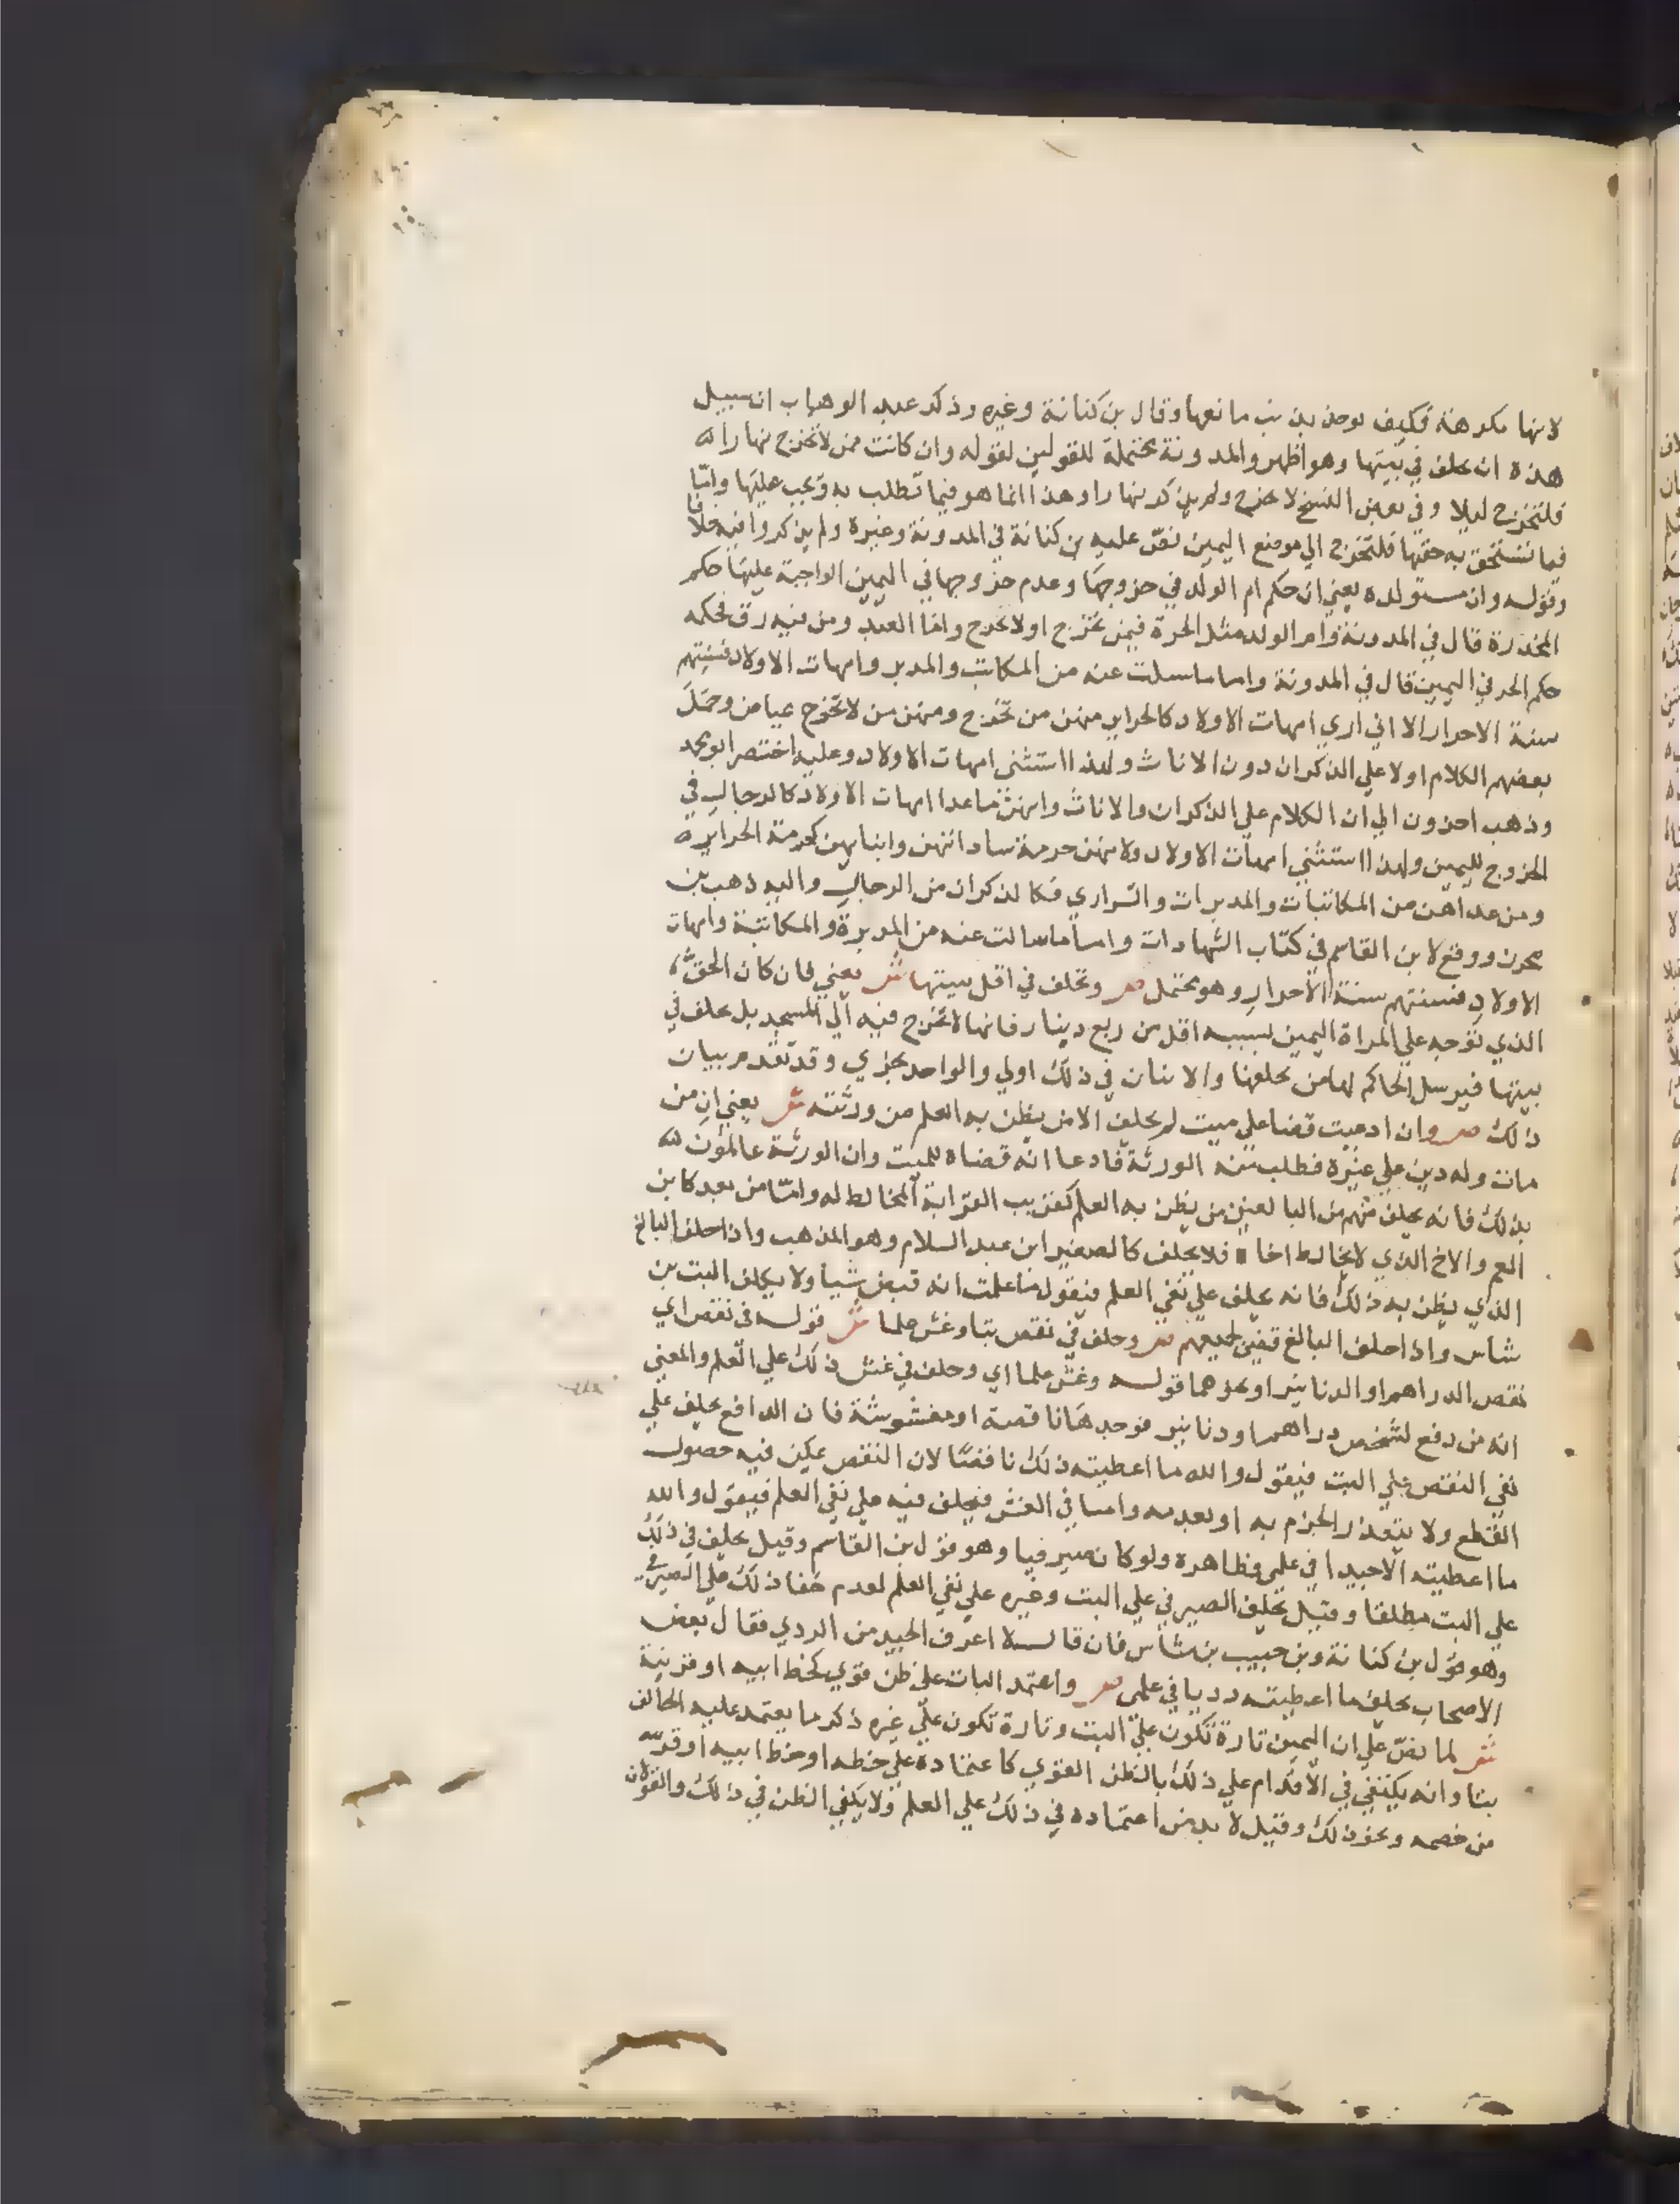 لانها مكرهة فكيف يوخذ بذنب مانعها وقال بن كنانة وغيره وذكر عبد الوهاب ان سبيل
هذه ان تحلف في بيتها وهو اظهر والمدونة محتملة للقولين لقوله وان كانت ممن لا تخرج نهارا
فلتخرج ليلا وفي بعض النسخ لا تخرج ولم يذكر نهارا وهذا انما هو فيما تطلب به ويجب عليها واما
فيما تستحق به حقها فلتخرج الي موضع اليمين نص عليه بن كنانة في المدونة وغيره ولم يذكروا فيه خلافا
وقوله وان مستولدة يعني ان حكم ام الولد في خروجها وعدم خروجها في اليمين الواجبة عليها حكم
المخدرة قال في المدونة وام الولد مثل الحرة فيمن تخرج او لا تخرج واما العبد ومن فيه رق فحكمه
حكم الحر في اليمين قال في المدونة واما ما سالت عنه من المكاتب والمدبر وامهات الاولاد فسنتهم
سنة الاحرار الا اني اري امهات الاولاد كالحراير منهن من تخرج ومنهن من لا تخرج عياض وحمل
بعضهم الكلام اولا علي الذكران دون الاناث ولهذا استثني امهات الاولاد وعليه اختصر ابو محمد
وذهب اخرون الي ان الكلام علي الذكران والاناث وانهن ما عدا امهات الاولاد كالرجال في
الخروج لليمين ولهذا استثني امهات الاولاد ولانهن حرمة ساداتهن وابنايهن كحرمة الحراير
ومن عداهن من المكاتبات والمدبرات والسراري فكالذكران من الرجال واليه ذهب بن
محرز ووقع لابن القاسم في كتاب الشهادات واما ما سالت عنه من المدبرة والمكاتبة وامهات
الاولاد فسنتهم سنة الاحرار وهو محتمل ص وتحلف في اقل ببيتها ش يعني فان كان الحق
الذي توجه علي المراة اليمين بسببه اقل من ربع دينار فانها لا تخرج فيه الي المسجد بل تحلف في
بيتها فيرسل الحاكم لها من يحلفها والاثنان في ذلك اولي والواحد يجزي وقد تقدم بيان
ذلك ص وان ادعيت قضا علي ميت لم يحلف الا من يظن به العلم من ورثته ش يعني ان من
مات وله دين علي غيره فطلبته الورثة فادعا انه قضاه للميت وان الورثة عالمون
بذلك فانه يحلف منهم من البالغين من يظن به العلم كقريب القرابة المخالط له واما من بعد كابن
العم والاخ الذي لا يخالط اخا فلا يحلف كالصغير ابن عبد السلام وهو المذهب واذا حلف البالغ
الذي يظن به ذلك فانه يحلف علي نفي العلم فيقول ما علمت انه قبض شيا ولا يكلف البت بن
شاس واذا حلف البالغ قضي لجميعهم ص وحلف في نقص بتا وغش علما ش قوله في نقص اي
نقص الدراهم او الدنانير او نحوهما قوله وغش علما اي وحلف في غش ذلك علي العلم والمعني
انه من دفع لشخص دراهم او دنانير فوجدها ناقصة او مغشوشة فان الدافع يحلف علي
نفي النقص علي البت فيقول والله ما اعطيته ذلك ناقصا لان النقص يمكن فيه حصول
القطع ولا يتعذر الجزم به او بعدمه واما في الغش فيحلف فيه علي نفي العلم فيقول والله
ما اعطيته الا جيدا في علمي وظاهره ولو كان صيرفيا وهو قول بن القاسم وقيل يحلف في ذلك
علي البت مطلقا وقيل يحلف الصيرفي علي البت وغيره علي نفي العلم لعدم خفا ذلك علي الصيرفي
وهو قول بن كنانة وبن حبيب بن شاس فان قال لا اعرف الجيد من الردي فقال بعض
الاصحاب يحلف ما اعطيته رديا في علمي ص واعتمد البات علي ظن قوي كخط ابيه او قرينة
ش لما نص علي ان اليمين تارة تكون علي البت وتارة تكون علي غيره ذكر ما يعتمد عليه الحالف
بتا وانه يكتفي في الاقدام علي ذلك بالظن القوي كاعتماده علي خطه او خط ابيه او قرينة
من خصمه ونحو ذلك وقيل لا بد من اعتماده في ذلك علي العلم ولا يكفي الظن في ذلك والقولان